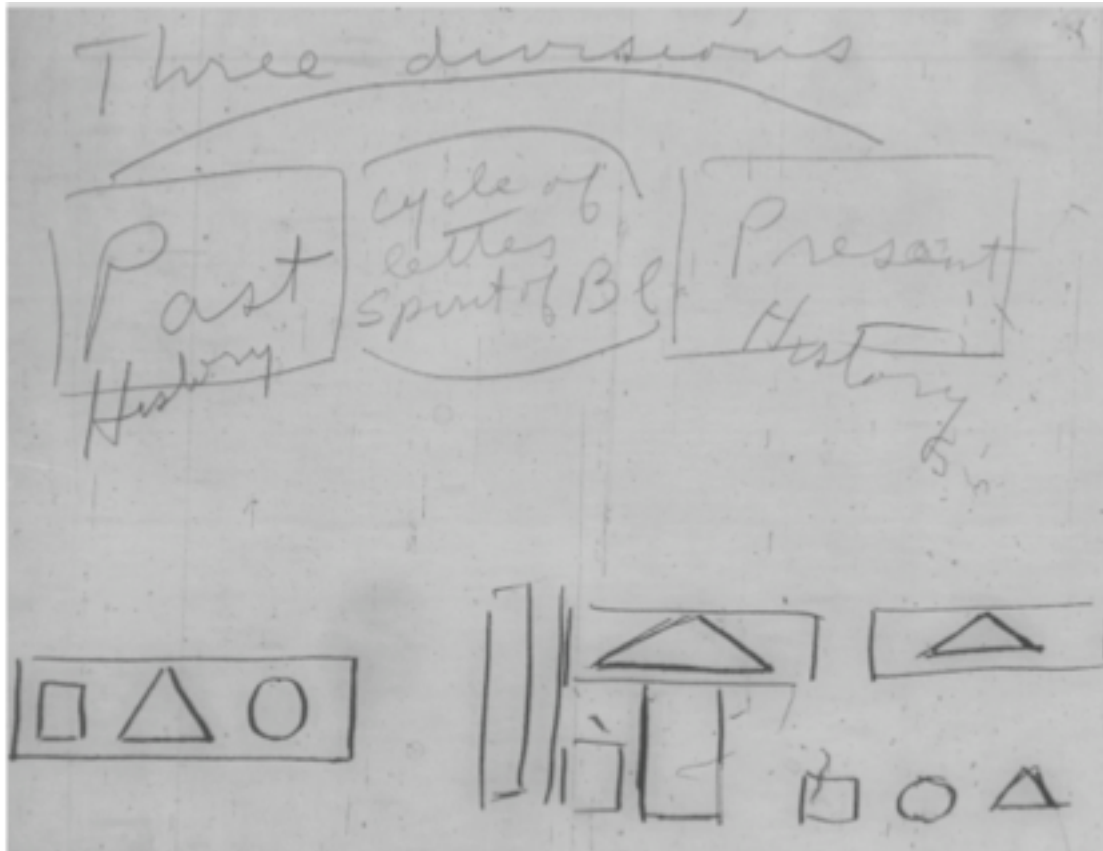 Three divisions
Past
History
cycle of
lettes
Spirit of Bl
Present
History